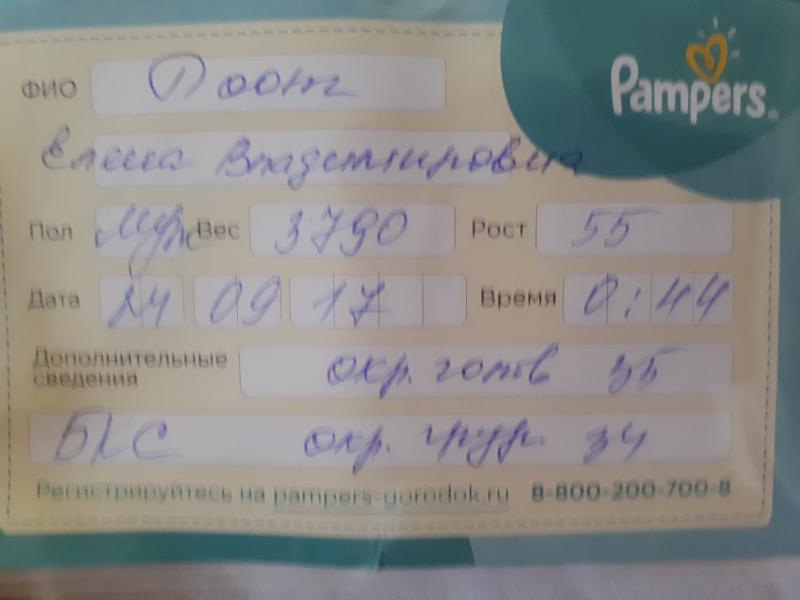 Pampers
ФИО
Елена Владимировна
Пол Муж Вес 3790 Рост 55
Дата 24 09 17 Время 0:44
Дополнительные
сведения
окр. голов 35
окр. груд. 34
Регистрируйтесь на pampers-gorodok.ru 8-800-200-700-8